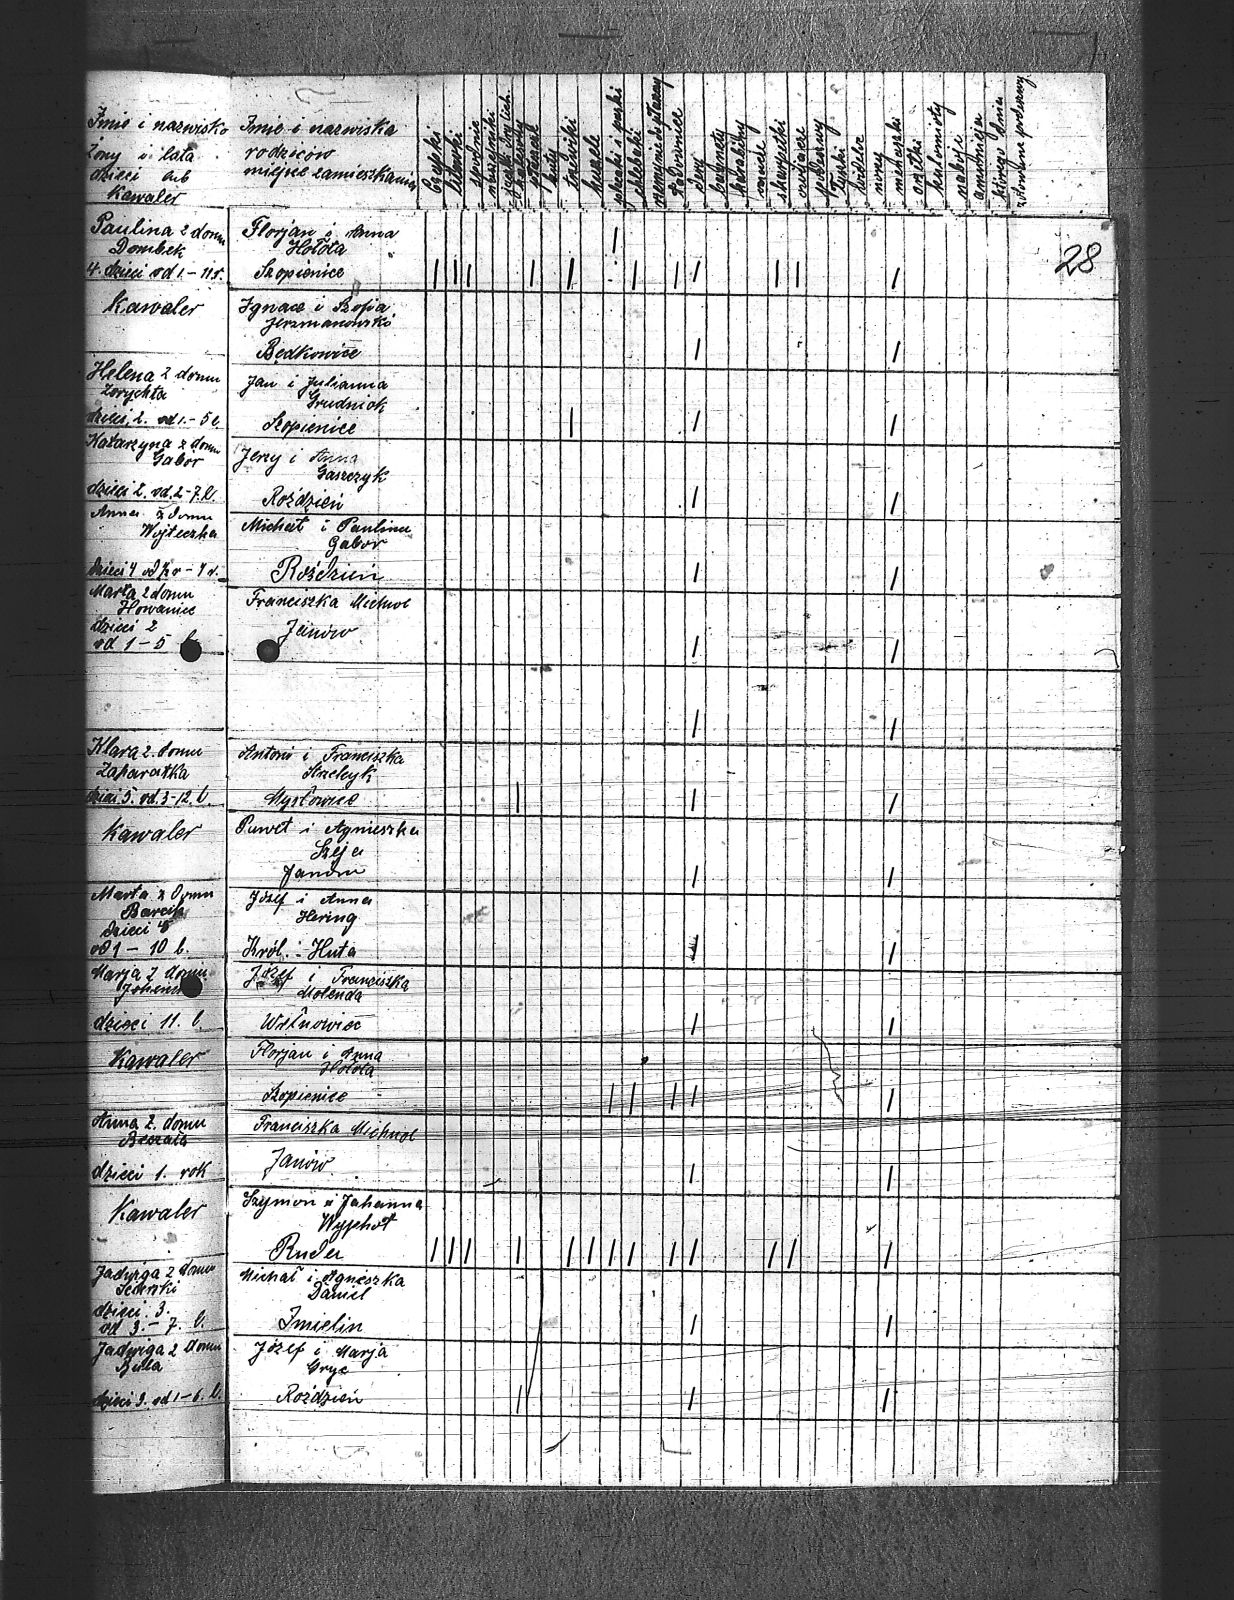 Imię i nazwisko
żony i lata
dzieci alb
kawaler
Imię i nazwiska
rodziców
miejsce zamieszkania
czapki
spodnie
buty
trzewiki
koszule
paski i paski
chlebaki
ładownice
bagnety
karabiny
skarpetki
owijacze
menaszki
kulomioty
naboje
amunicja
którego dnia
28
Paulina z domu
Dombek
4. dzieci od 1.-11 r.
Florjan i Anna
Hołota
Szopienice
Kawaler
Ignacz i Zofia
Jerzmanowski
Będkowice
Helena z domu
Zorychta
dzieci, 2. od 1.-5 l.
Jan i Julianna
Grudniok
Szopienice
Katarzyna z domu
Gabor
dzieci 2. od 2-7. l.
Jerzy i Anna
Gaszczyk
Roździeń
Anna z domu
Wojteczka
dzieci 4 od
Michał i Paulina
Gabor
Roździeń
Marta z domu
Howaniec
dzieci 2
od 1-5 l
Franciszka Michnol
Janów
Klara z domu
Zaparatka
dzieci 5. od 3-12. l.
Antoni i Franciszka
Strzelczyk
Mysłowice
Kawaler
Paweł i Agnieszka
Szeja
Janów
Marta z domu
dzieci
od 1-10 l.
Józef i Anna
Hering
Król.-Huta
Marja z domu
dzieci 11. l.
Józef i Franciszka
Molenda
Kawaler
Florjan i Anna
Hołota
Szopienice
Anna z. domu
dzieci 1. rok
Franciszka Michnol
Janów
Kawaler
Szymon i Johanna
Ruda
Jadwiga z domu
dzieci 3.
od 3.-7. l.
Michał i Agnieszka
Daniel
Imielin
Jadwiga z domu
Buła
dzieci 3. od 1-6. l.
Józef i Marja
Gryc
Roździeń